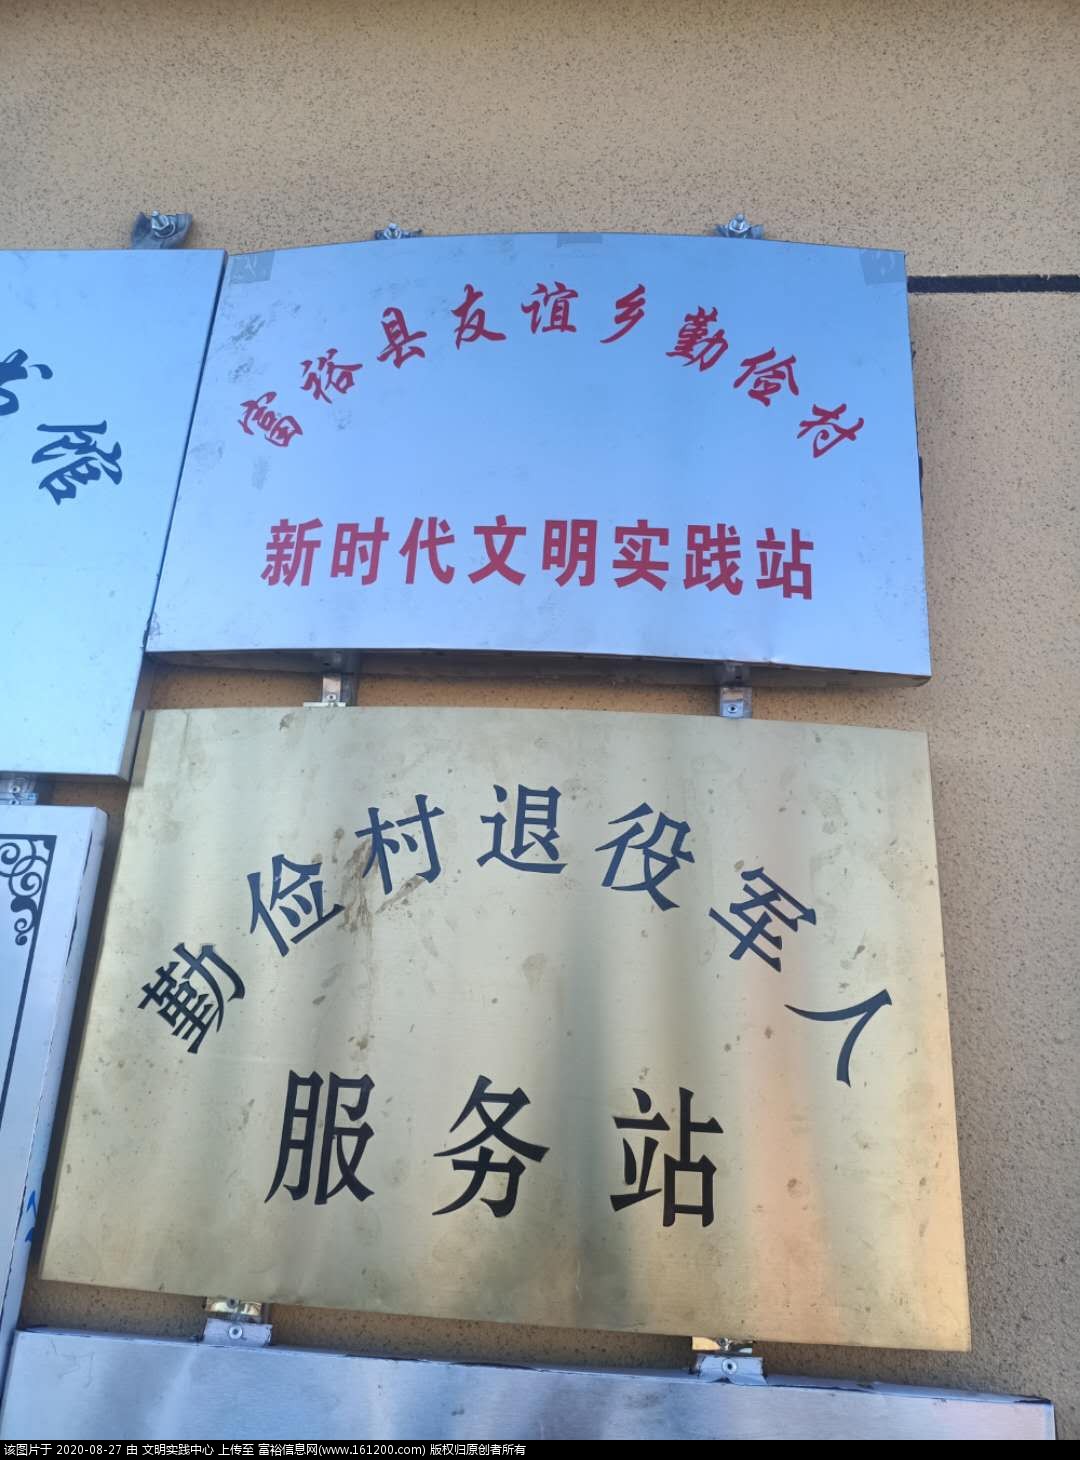 富裕县友谊乡勤俭村
新时代文明实践站
馆
勤俭村退役军人
服务站
该图片于 2020-08-27 由 文明实践中心 上传至 富裕信息网(www.161200.com) 版权归原创者所有